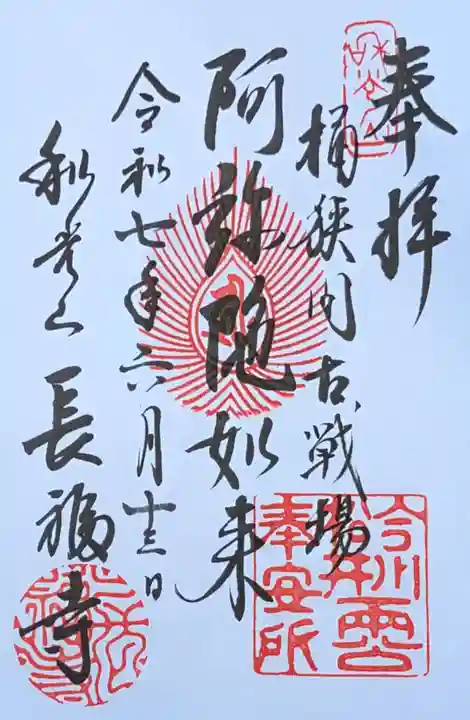 奉拝
桶狭間古戦場
阿弥陀如来
令和七年六月十三日
和光山 長福寺
今川
奉安所